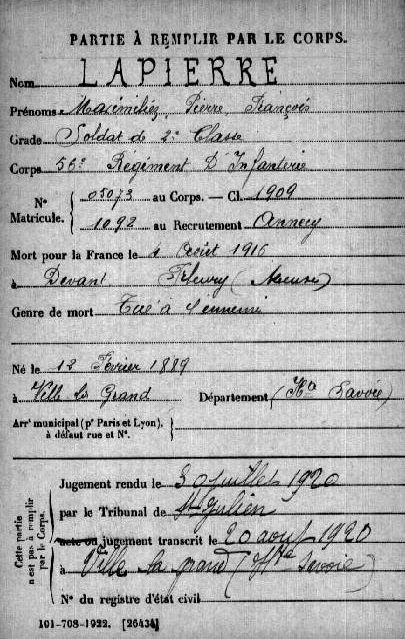 PARTIE À REMPLIR PAR LE CORPS.
Nom LAPIERRE
Prénoms Maximilien, Pierre, François
Grade Soldat de 2e Classe
Corps 56e Régiment D'Infanterie
N° Matricule. { 05073 au Corps. — Cl. 1909
1092 au Recrutement Annecy
Mort pour la France le 4 Août 1916
à Devant Fleury (Meuse)
Genre de mort Tué à l'ennemi
Né le 12 Février 1889
à Ville la Grand Département (Hte Savoie)
Arrt municipal (pr Paris et Lyon), à défaut rue et N°. }
Cette partie n'est pas à remplir par le Corps.
Jugement rendu le 30 juillet 1920
par le Tribunal de St Julien
acte ou jugement transcrit le 20 août 1920
à Ville la grand (Hte Savoie)
N° du registre d'état civil
101-708-1922. [26434]